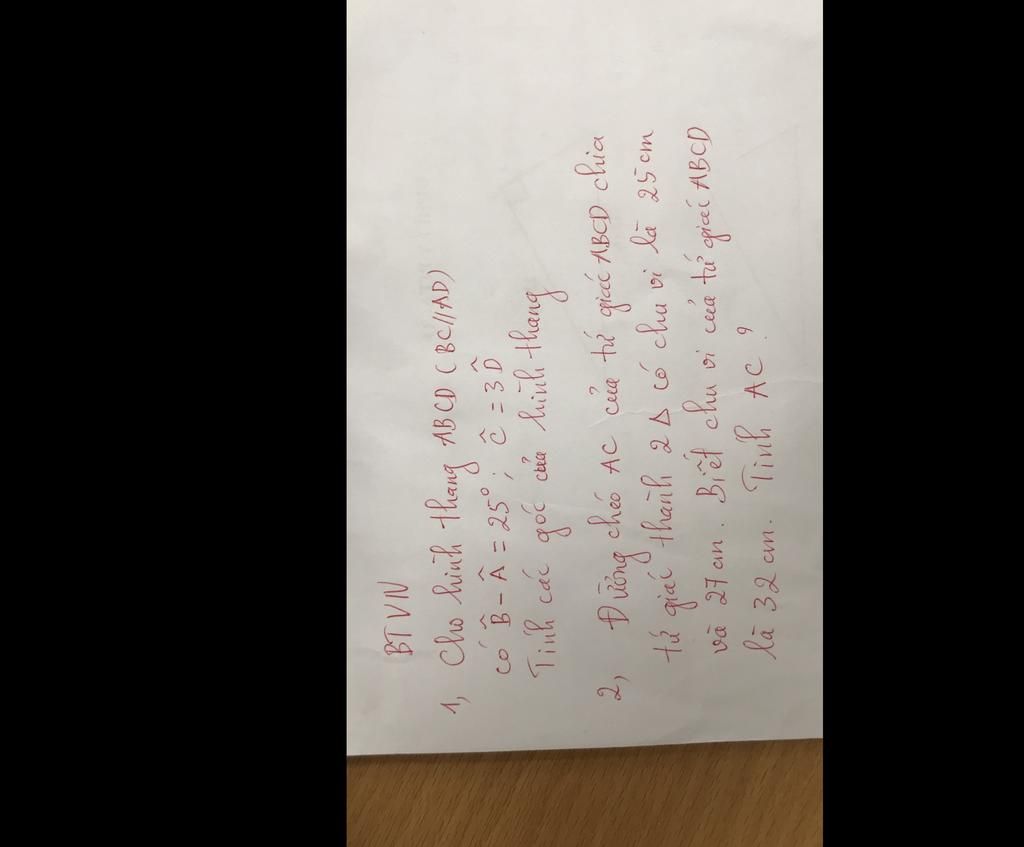 BTVN
1, Cho hình thang ABCD (BC//AD)
có B̂ - Â = 25° ; Ĉ = 3D̂
Tính các góc của hình thang
2, Đường chéo AC của tứ giác ABCD chia
tứ giác thành 2 Δ có chu vi là 25cm
và 27cm. Biết chu vi của tứ giác ABCD
là 32 cm. Tính AC ?